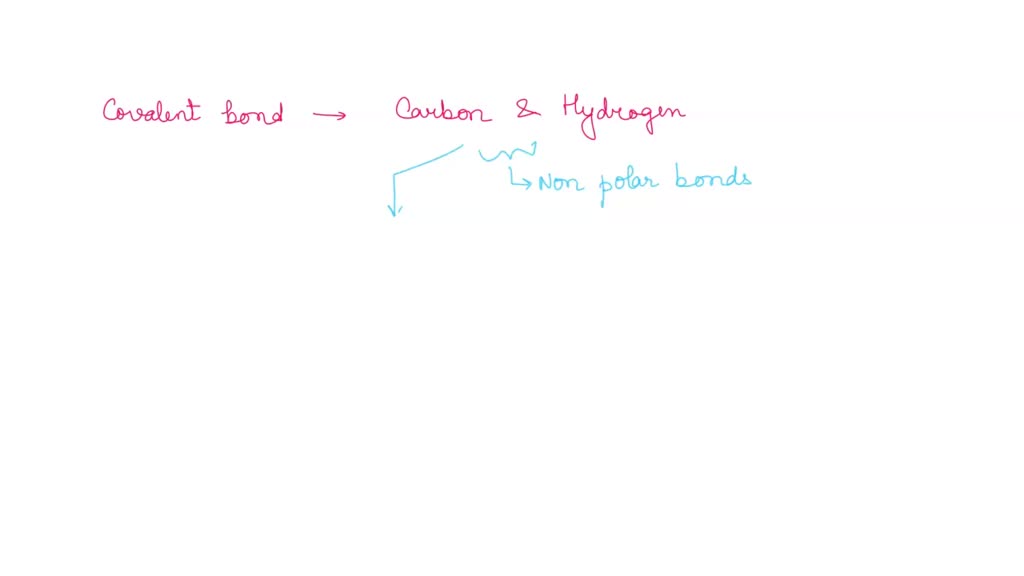 Covalent bond → Carbon & Hydrogen
↳ Non polar bonds